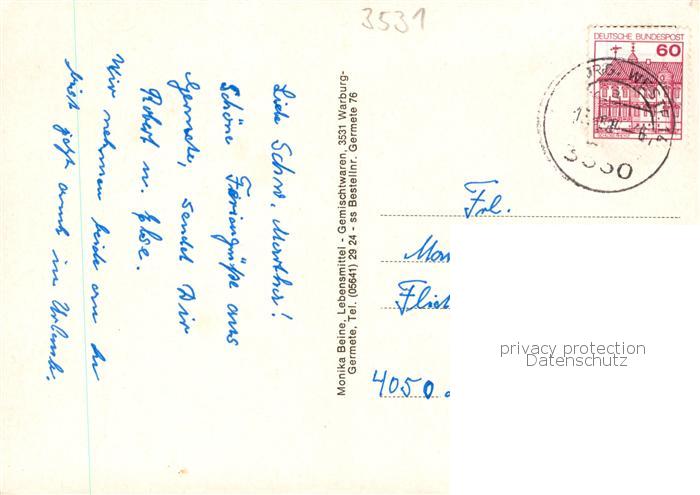 3531
DEUTSCHE BUNDESPOST
60
WESTF 1
3530
Liebe Schw. Martha!
Schöne Feriengrüße aus
Germete, sendet Dir
Robert u. Else.
Wir nehmen beide an Du
bist jetzt auch im Urlaub.
Monika Beine, Lebensmittel - Gemischtwaren, 3531 Warburg-
Germete, Tel. (05641) 29 24 - ss Bestellnr. Germete 76
Frl.
4050
privacy protection
Datenschutz